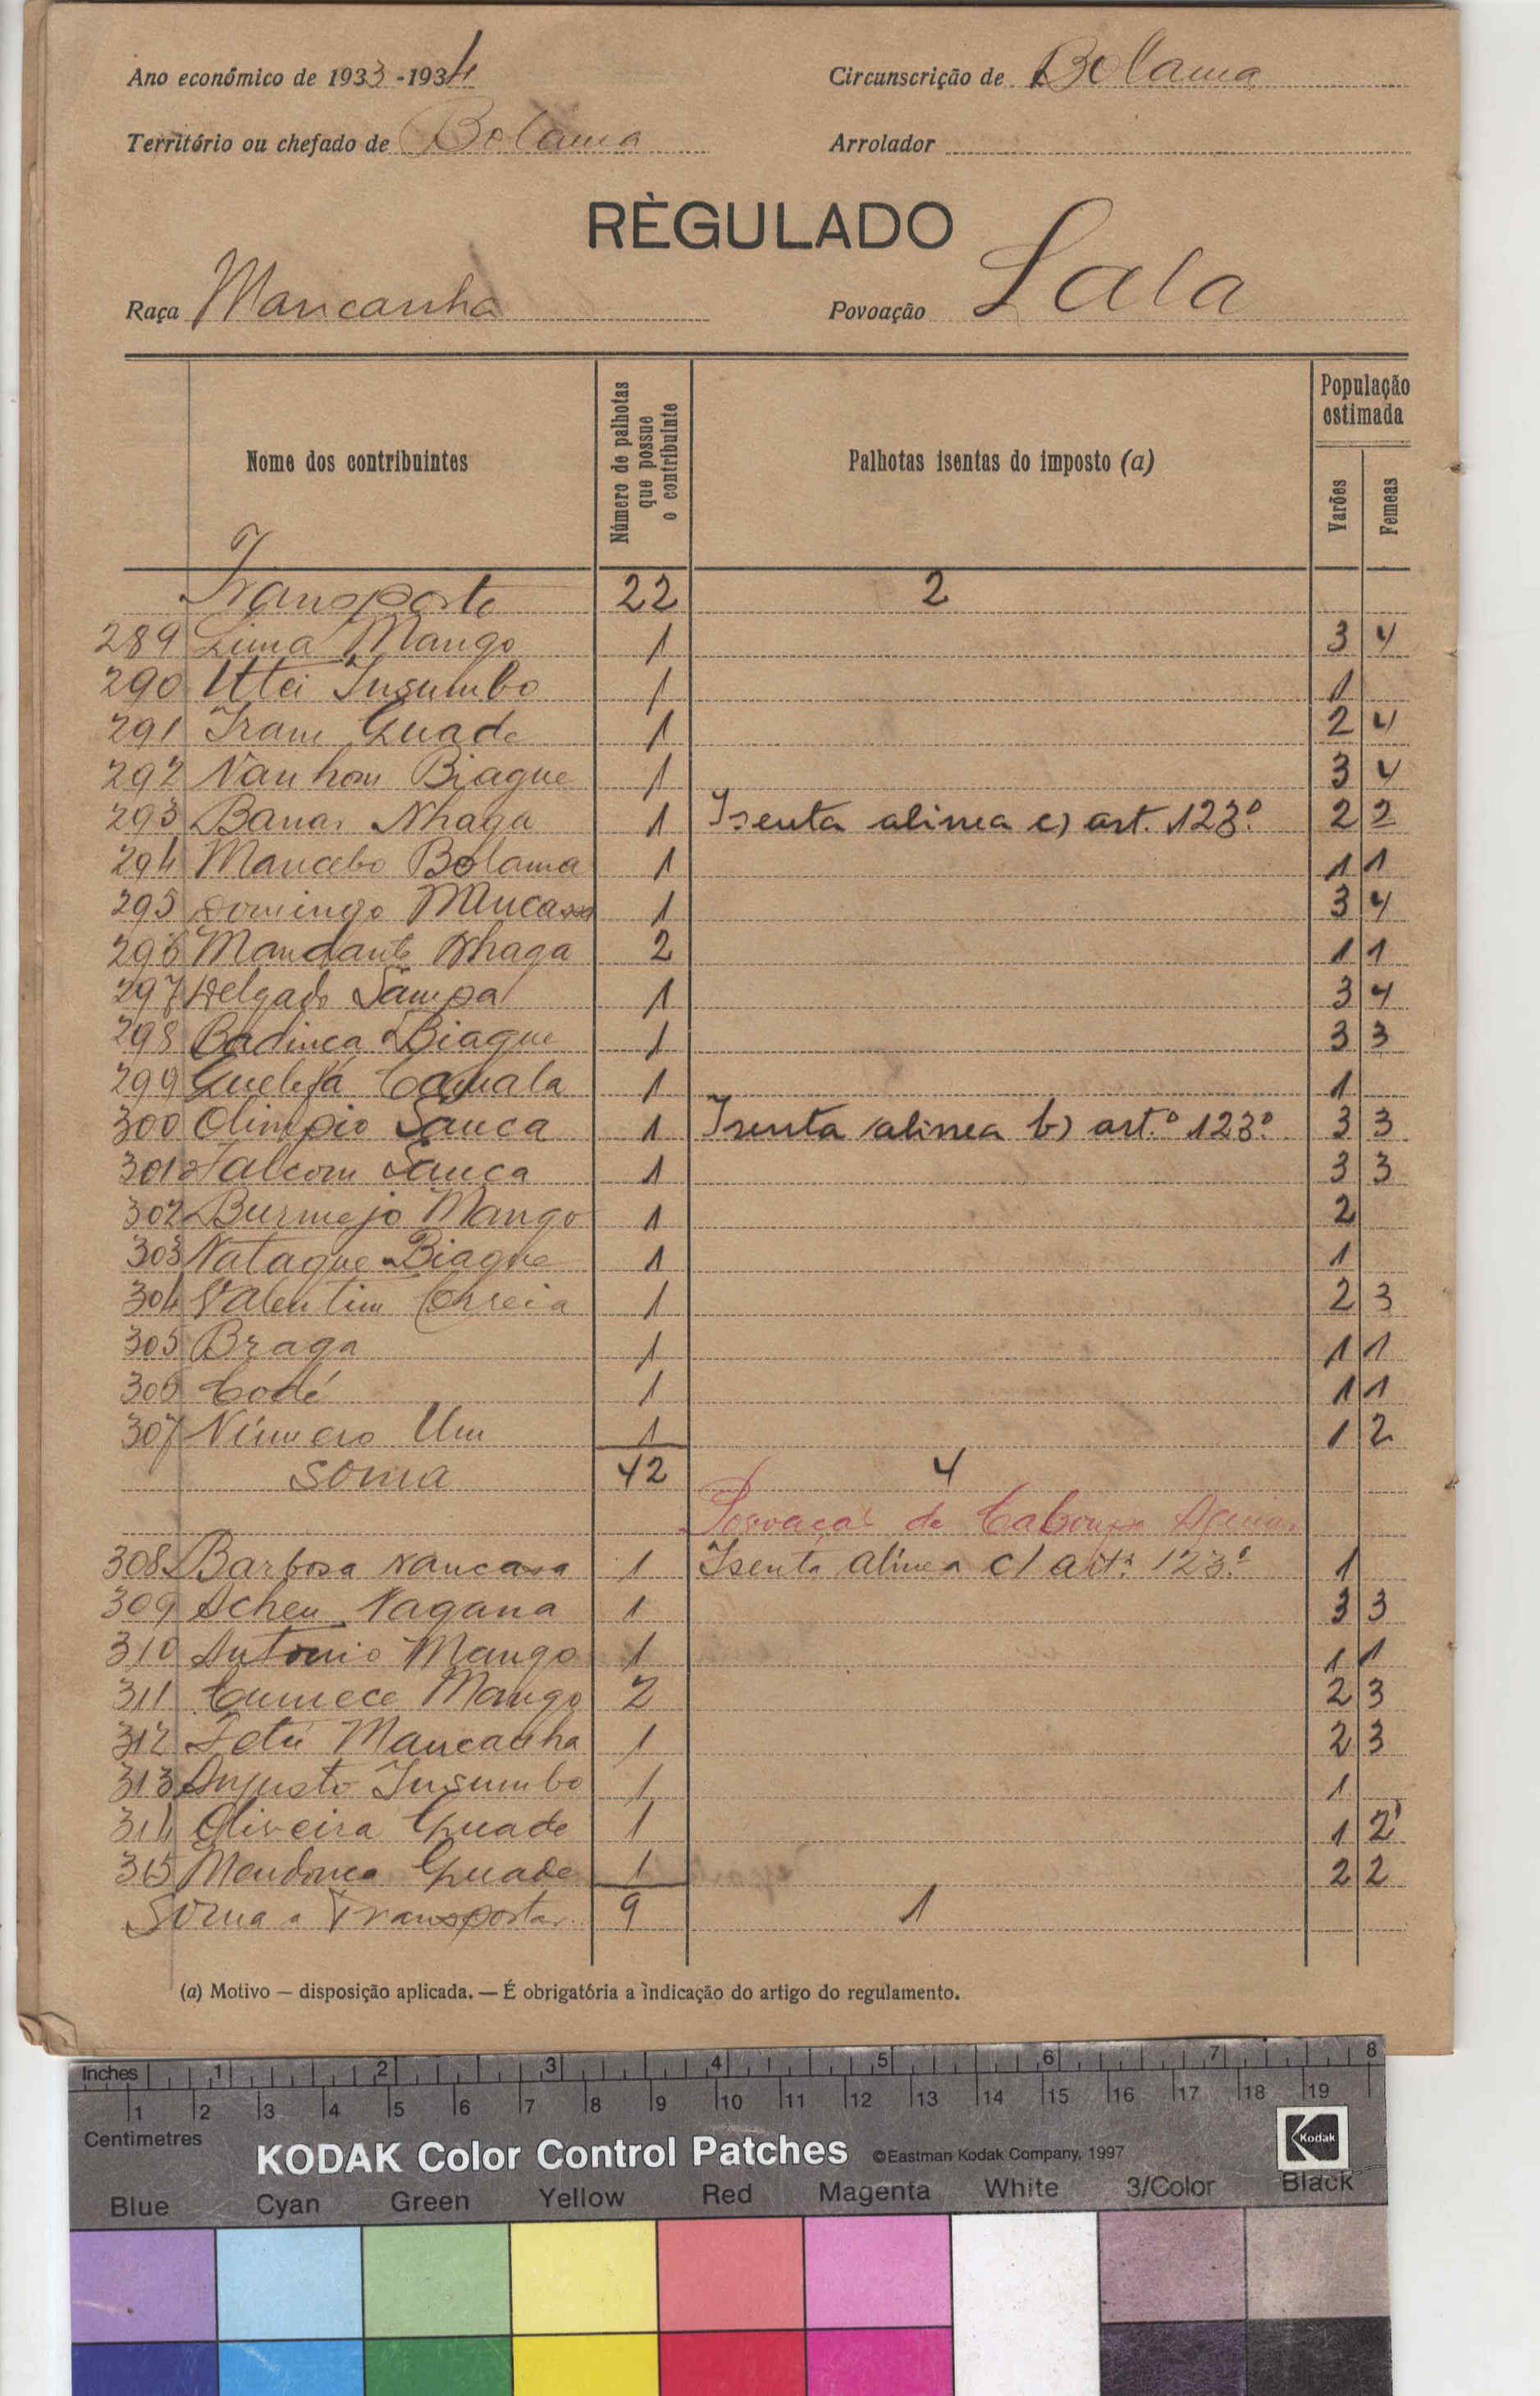 Ano económico de 1933-1934
Circunscrição de Bolama
Território ou chefado de Bolama
Arrolador
RÈGULADO
Raça Mancanha
Povoação Lala
Nome dos contribuintes
Número de palhotas que possue o contribuinte
Palhotas isentas do imposto (a)
População estimada
Varões
Femeas
Transporte 22 2
289 Lima Mango 1 3 4
290 Utei Insumbo 1 1
291 Iram Guade 1 2 4
292 Nanhom Biague 1 3 4
293 Banar Nhaga 1 Isenta alinea c) art. 123º 2 2
294 Mancebo Bolama 1 1 1
295 Domingo 1 3 4
296 Mandante Nhaga 2 1 1
297 Delgado Sampa 1 3 4
298 Badinca Biague 1 3 3
299 1 1
300 Olimpio Sanca 1 Isenta alinea b) art.º 123º 3 3
301 Falcom Sanca 1 3 3
302 Burmejo Mango 1 2
303 Natague Biague 1 1
304 Valentim Correia 1 2 3
305 Braga 1 1 1
306 Codé 1 1 1
307 Número Um 1 1 2
Soma 42 4
de
308 Barbosa Nancasa 1 Isenta alinea c) artº 123º 1
309 Acheu Nagana 1 3 3
310 Antonio Mango 1 1 1
311 Cumece Mango 2 2 3
312 Mancanha 1 2 3
313 Augusto Insumbo 1 1
314 Oliveira Guade 1 1 2
315 Mendonca Guade 1 2 2
Soma a Transportar 9 1
(a) Motivo — disposição aplicada. — É obrigatória a indicação do artigo do regulamento.
Inches 1 2 3 4 5 6 7 8
1 2 3 4 5 6 7 8 9 10 11 12 13 14 15 16 17 18 19
Centimetres
KODAK Color Control Patches ©Eastman Kodak Company, 1997 Kodak
Blue Cyan Green Yellow Red Magenta White 3/Color Black